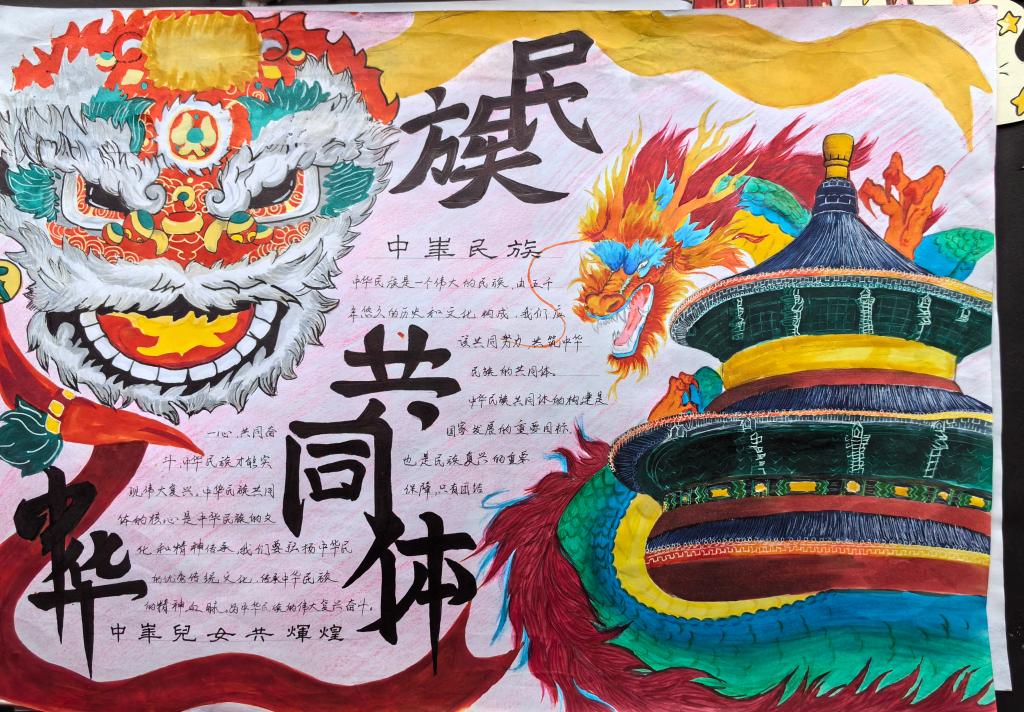 民族
中華民族
中华民族是一个伟大的民族，由五千
年悠久的历史和文化构成，我们应
该共同努力 共筑中华
民族的共同体。
中华民族共同体的构建是
国家发展的重要目标，
也是民族复兴的重要
保障，只有团结
共同体
一心，共同奋
斗，中华民族才能实
现伟大复兴。中华民族共同
体的核心是中华民族的文
化和精神传承，我们要弘扬中华民
的优秀传统文化，传承中华民族
的精神血脉，为中华民族的伟大复兴奋斗。
中华
中華兒女共輝煌